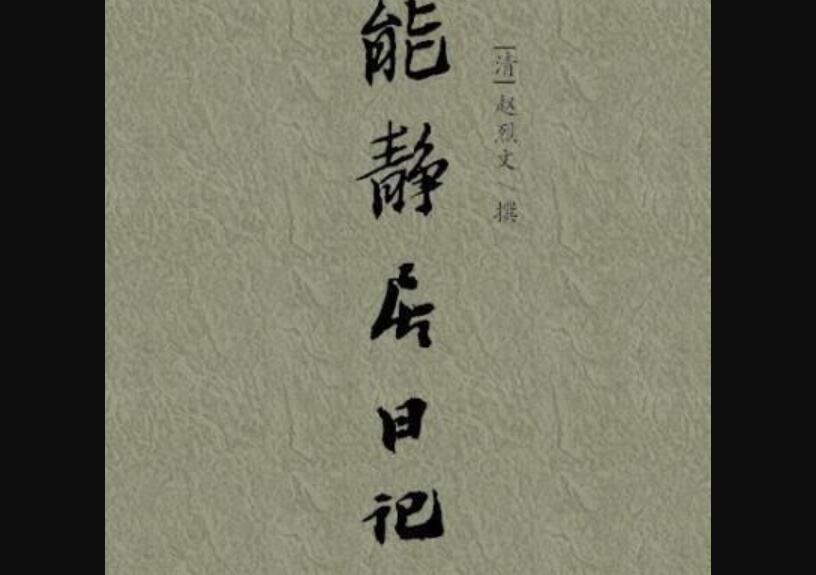 能静居日记
[清]赵烈文 撰